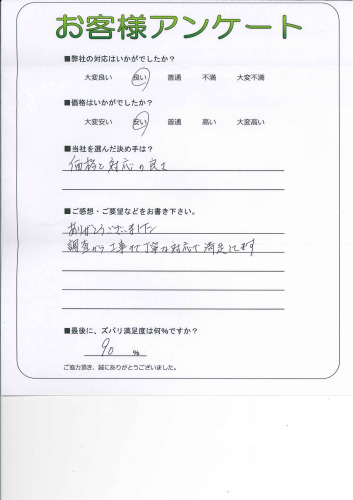 お客様アンケート
■弊社の対応はいかがでしたか?
大変良い 良い 普通 不満 大変不満
■価格はいかがでしたか?
大変安い 安い 普通 高い 大変高い
■当社を選んだ決め手は?
価格と対応の良さ
■ご感想・ご要望などをお書き下さい。
ありがとうございました
調査から工事まで丁寧な対応で満足してます
■最後に、ズバリ満足度は何%ですか?
90 %
ご協力頂き、誠にありがとうございました。